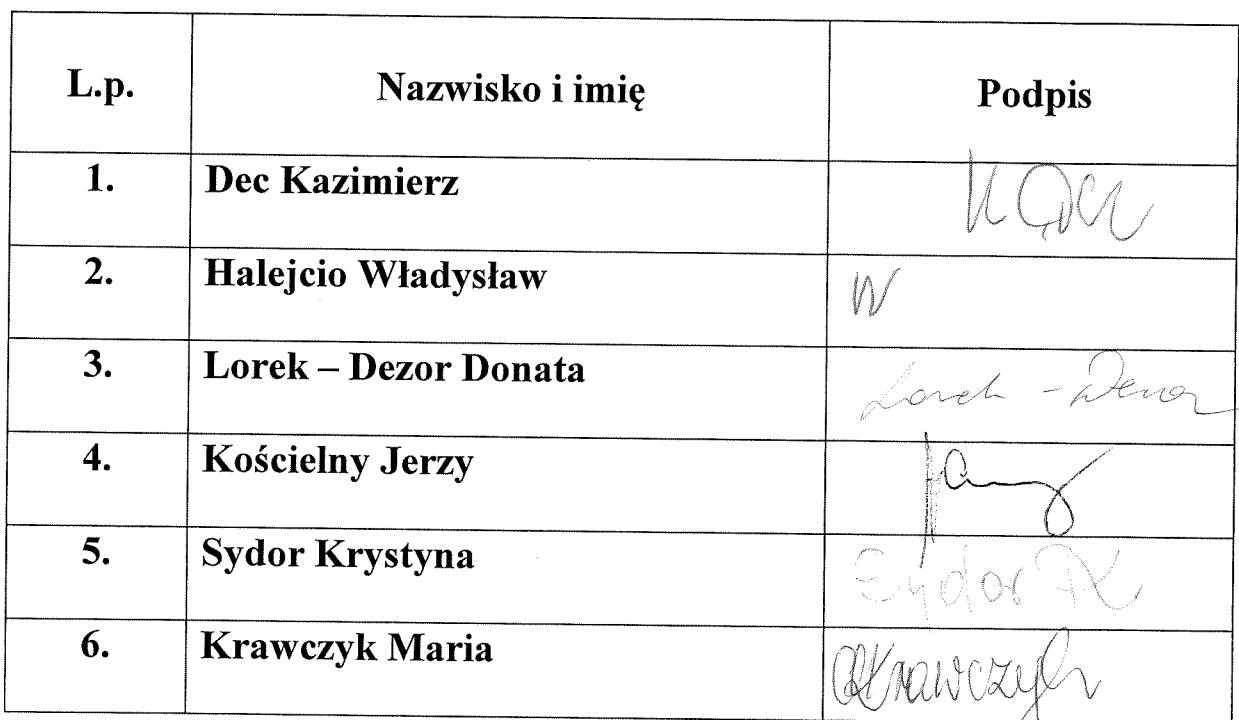 L.p. Nazwisko i imię Podpis
1. Dec Kazimierz
2. Halejcio Władysław W
3. Lorek – Dezor Donata Lorek - Dezor
4. Kościelny Jerzy
5. Sydor Krystyna Sydor K
6. Krawczyk Maria Krawczyk